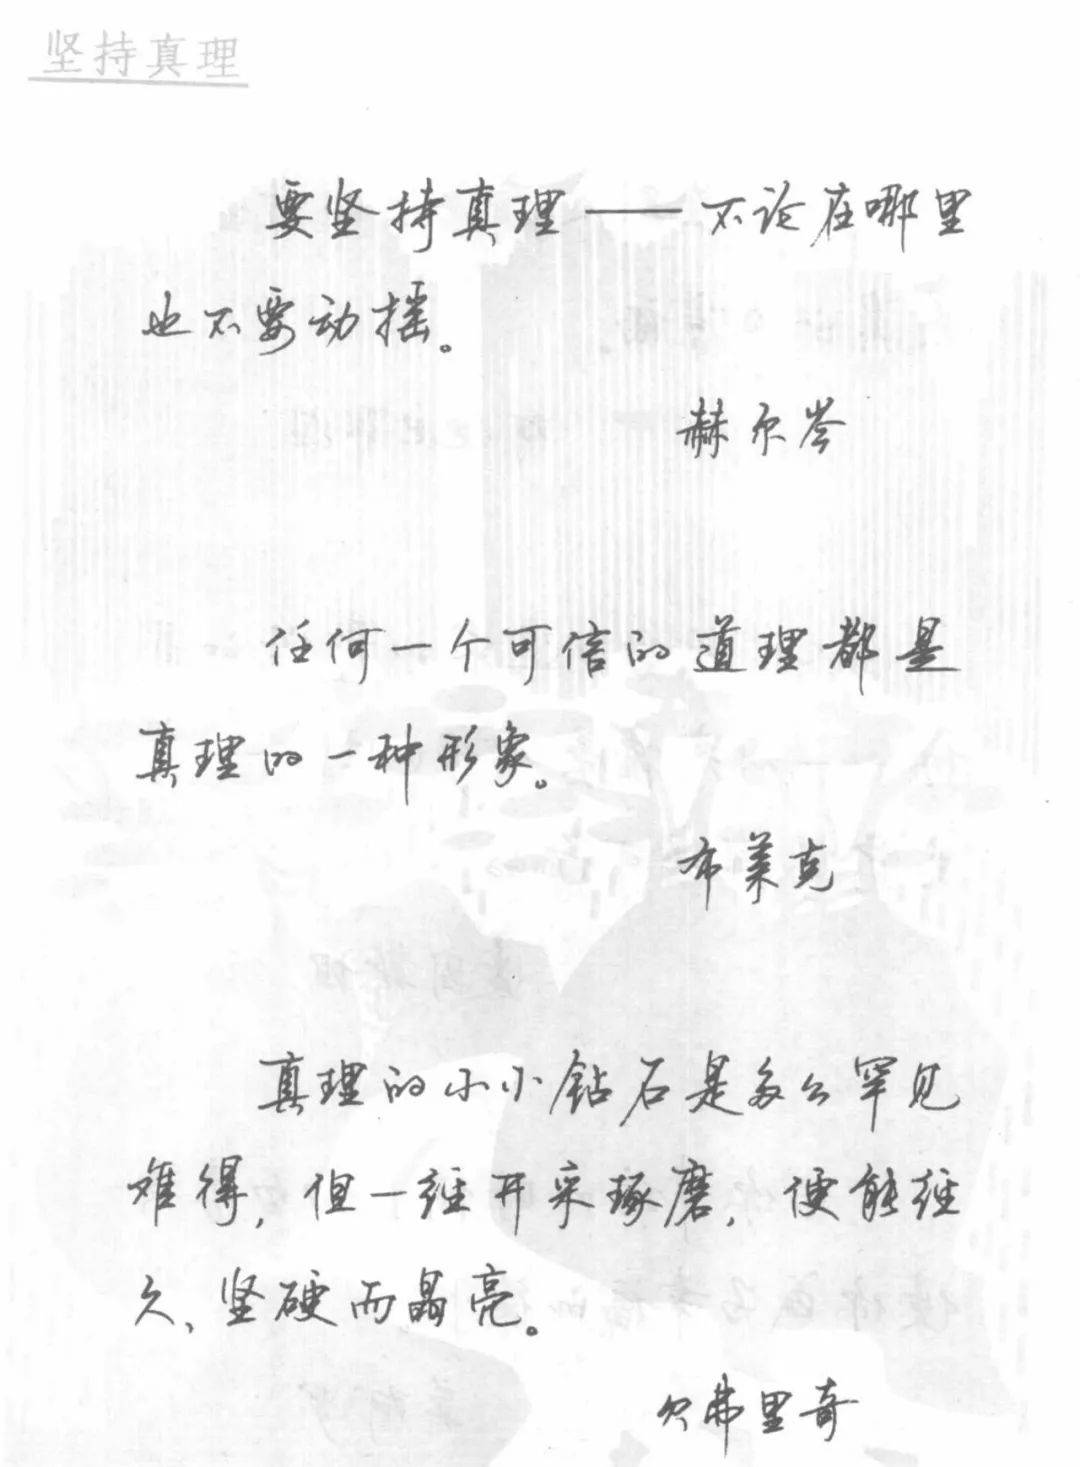 坚持真理
要坚持真理——不论在哪里
也不要动摇。
赫尔岑
任何一个可信的道理都是
真理的一种形象。
布莱克
真理的小小钻石是多么罕见
难得，但一经开采琢磨，便能经
久、坚硬而晶亮。
贝弗里奇